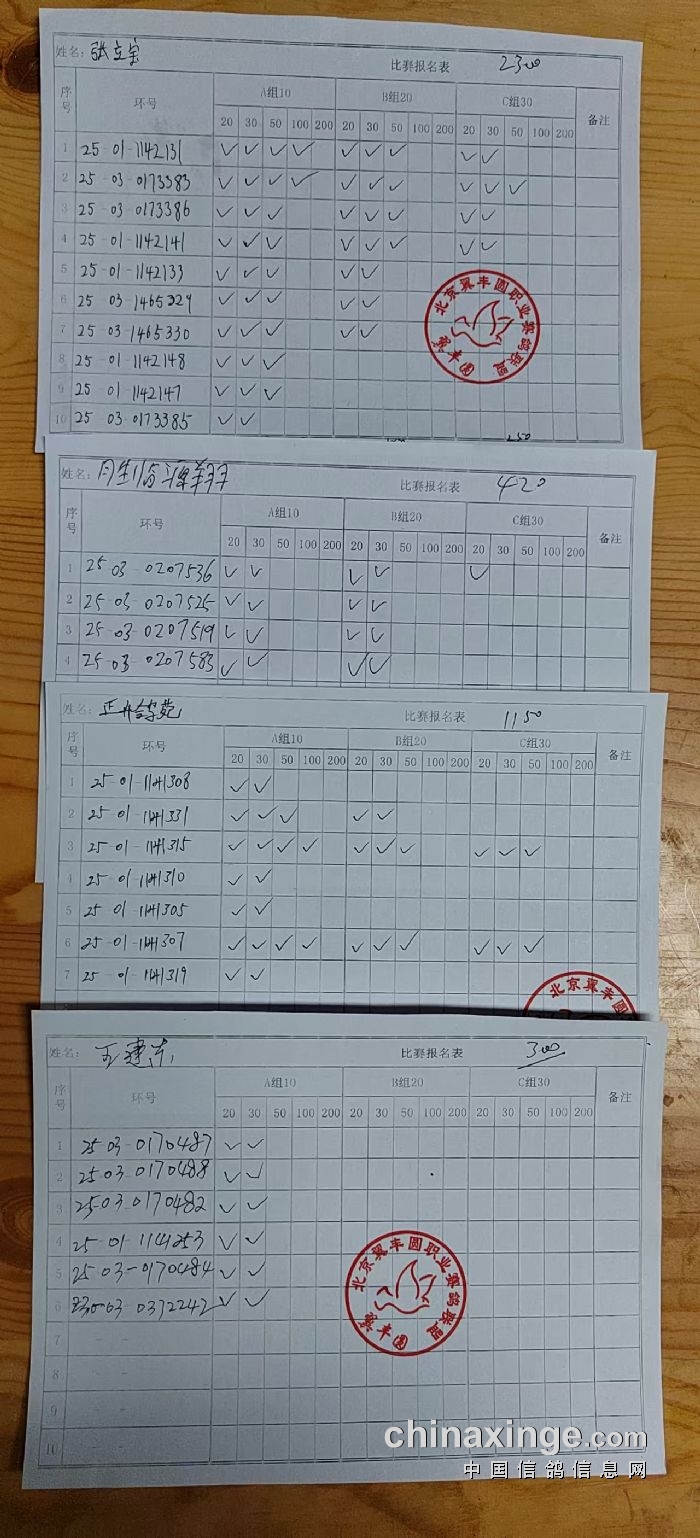 姓名: 张立宝 比赛报名表 2300
序号 环号 A组10 B组20 C组30 备注
20 30 50 100 200 20 30 50 100 200 20 30 50 100 200
1 25-01-1142131 ✓ ✓ ✓ ✓ ✓ ✓ ✓ ✓ ✓
2 25-03-0173383 ✓ ✓ ✓ ✓ ✓ ✓ ✓ ✓ ✓ ✓
3 25-03-0173386 ✓ ✓ ✓ ✓ ✓ ✓ ✓ ✓
4 25-01-1142141 ✓ ✓ ✓ ✓ ✓ ✓ ✓ ✓
5 25-01-1142133 ✓ ✓ ✓ ✓ ✓
6 25-03-1465329 ✓ ✓ ✓ ✓ ✓
7 25-03-1465330 ✓ ✓ ✓ ✓ ✓
8 25-01-1142148 ✓ ✓ ✓
9 25-01-1142147 ✓ ✓ ✓
10 25 03-0173385 ✓ ✓
北京翼丰圆职业赛鸽联盟
翼丰圆
姓名: 比赛报名表 420
序号 环号 A组10 B组20 C组30 备注
20 30 50 100 200 20 30 50 100 200 20 30 50 100 200
1 25-03-0207536 ✓ ✓ ✓ ✓ ✓
2 25-03-0207525 ✓ ✓ ✓ ✓
3 25-03-0207519 ✓ ✓ ✓ ✓
4 25-03-0207583 ✓ ✓ ✓ ✓
姓名: 比赛报名表 1150
序号 环号 A组10 B组20 C组30 备注
20 30 50 100 200 20 30 50 100 200 20 30 50 100 200
1 25-01-1141308 ✓ ✓
2 25-01-1141331 ✓ ✓ ✓ ✓ ✓
3 25-01-1141315 ✓ ✓ ✓ ✓ ✓ ✓ ✓ ✓ ✓ ✓
4 25-01-1141310 ✓ ✓
5 25-01-1141305 ✓ ✓
6 25-01-1141307 ✓ ✓ ✓ ✓ ✓ ✓ ✓ ✓ ✓ ✓
7 25-01-1141319 ✓ ✓
北京翼丰圆
姓名: 王建 比赛报名表 300
序号 环号 A组10 B组20 C组30 备注
20 30 50 100 200 20 30 50 100 200 20 30 50 100 200
1 25 03-0170487 ✓ ✓
2 25 03-0170488 ✓ ✓
3 25-03-0170482 ✓ ✓
4 25-01-1141253 ✓ ✓
5 25 03-0170484 ✓ ✓
6 03 0372242 ✓ ✓
7
8
9
10
北京翼丰圆职业赛鸽联盟
翼丰圆
chinaxinge.com
中国信鸽信息网